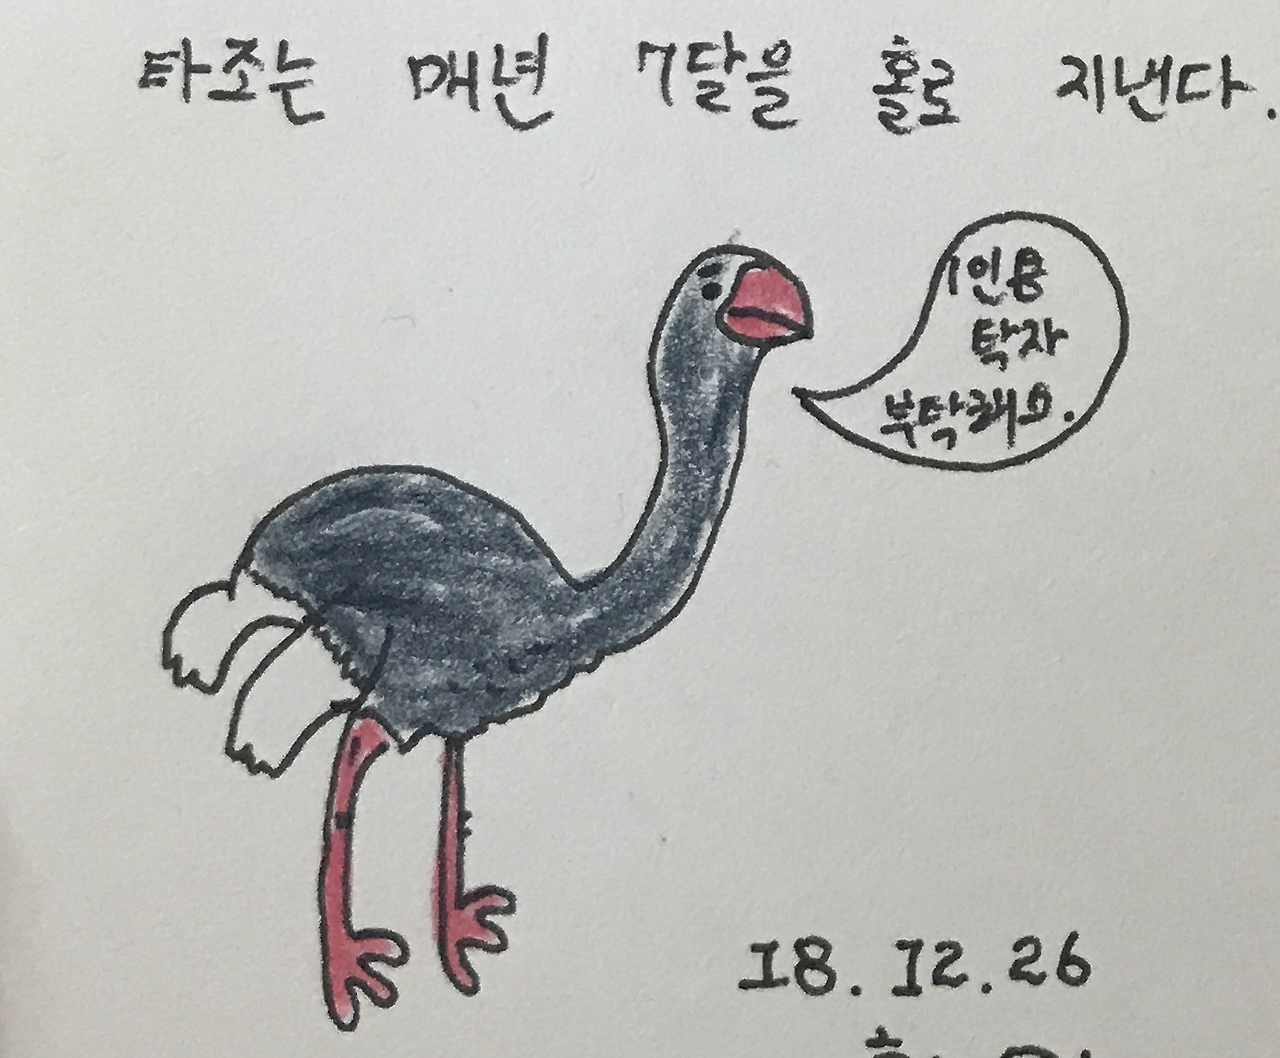 타조는 매년 7달을 홀로 지낸다.
1인용
탁자
부탁해요.
18.12.26